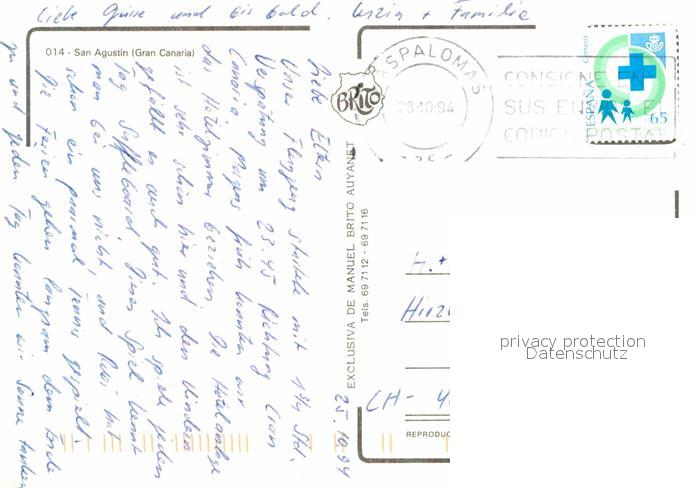 Liebe Grüsse und bis bald. + Familie
014 - San Agustin (Gran Canaria)
25.10.94
Liebe Eltern
Unser Flugzeug startete mit 1 3/4 Std.
Verspätung um 23.45 Richtung Gran
Canaria. Morgens früh konnten wir
das Hotelzimmer beziehen. Die Hotelanlage
ist sehr schön hier und den Kindern
gefällt es auch gut. Ich spiele jeden
Tag Shuffleboard. Dieses Spiel kennt
man bei uns nicht, und hat
schon ein paarmal Tennis gespielt.
Die Ferien gehen langsam dem Ende
zu und jeden Tag konnten wir Sonne tanken
BRITO
EXCLUSIVA DE MANUEL BRITO AUYANET
Tels. 69 7112 - 69 7116
ASPALOMAS
28-10-94
CONSIGNE EN
SUS EN
CODIGO POSTAL
ESPAÑA
correos
65
H. +
CH- 4
REPRODUC
privacy protection
Datenschutz